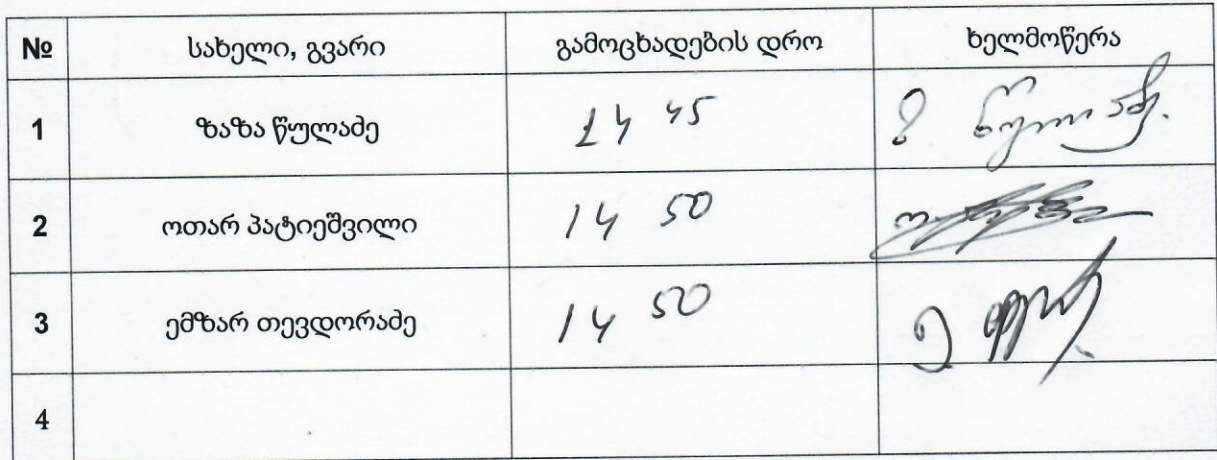 № სახელი, გვარი გამოცხადების დრო ხელმოწერა
1 ზაზა წულაძე 14 45
2 ოთარ პატიეშვილი 14 50
3 ემზარ თევდორაძე 14 50
4